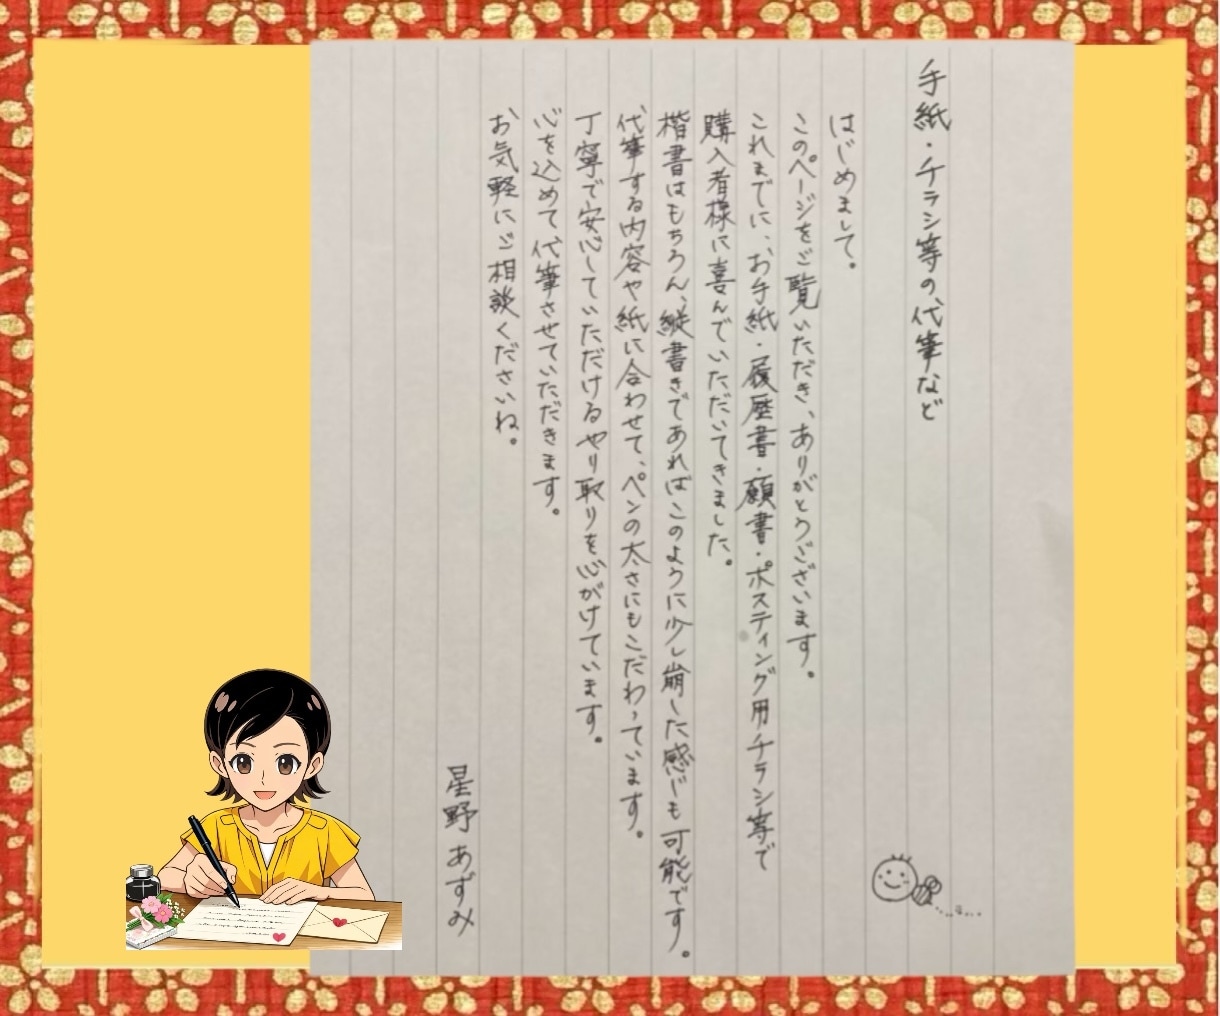 手紙・チラシ等の代筆など
はじめまして。
このページをご覧いただき、ありがとうございます。
これまでに、お手紙・履歴書・願書・ポスティング用チラシ等で
購入者様に喜んでいただいてきました。
楷書はもちろん、縦書きであればこのように少し崩した感じも可能です。
代筆する内容や紙に合わせて、ペンの太さにもこだわっています。
丁寧で安心していただけるやり取りを心がけています。
心を込めて、代筆させていただきます。
お気軽にご相談くださいね。
星野 あずみ